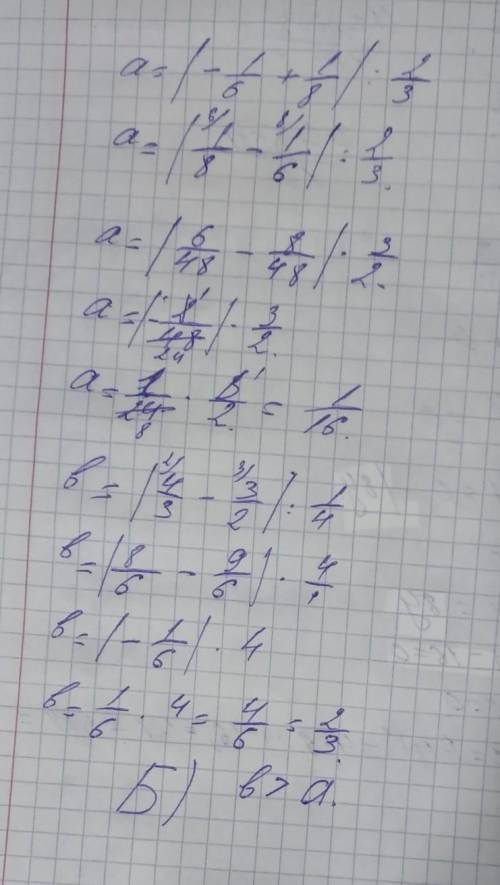 a = |-1/6 + 1/8| : 2/3
a = |⁶⁾1/8 - ⁸⁾1/6| : 2/3.
a = |6/48 - 8/48| · 3/2.
a = |-2/48| · 3/2.
a = 1/24 · 3/2. = 1/16.
b = |²⁾4/3 - ³⁾3/2| : 1/4
b = |8/6 - 9/6| · 4/1
b = |-1/6| · 4
b = 1/6 · 4 = 4/6 = 2/3.
Б) b > a.